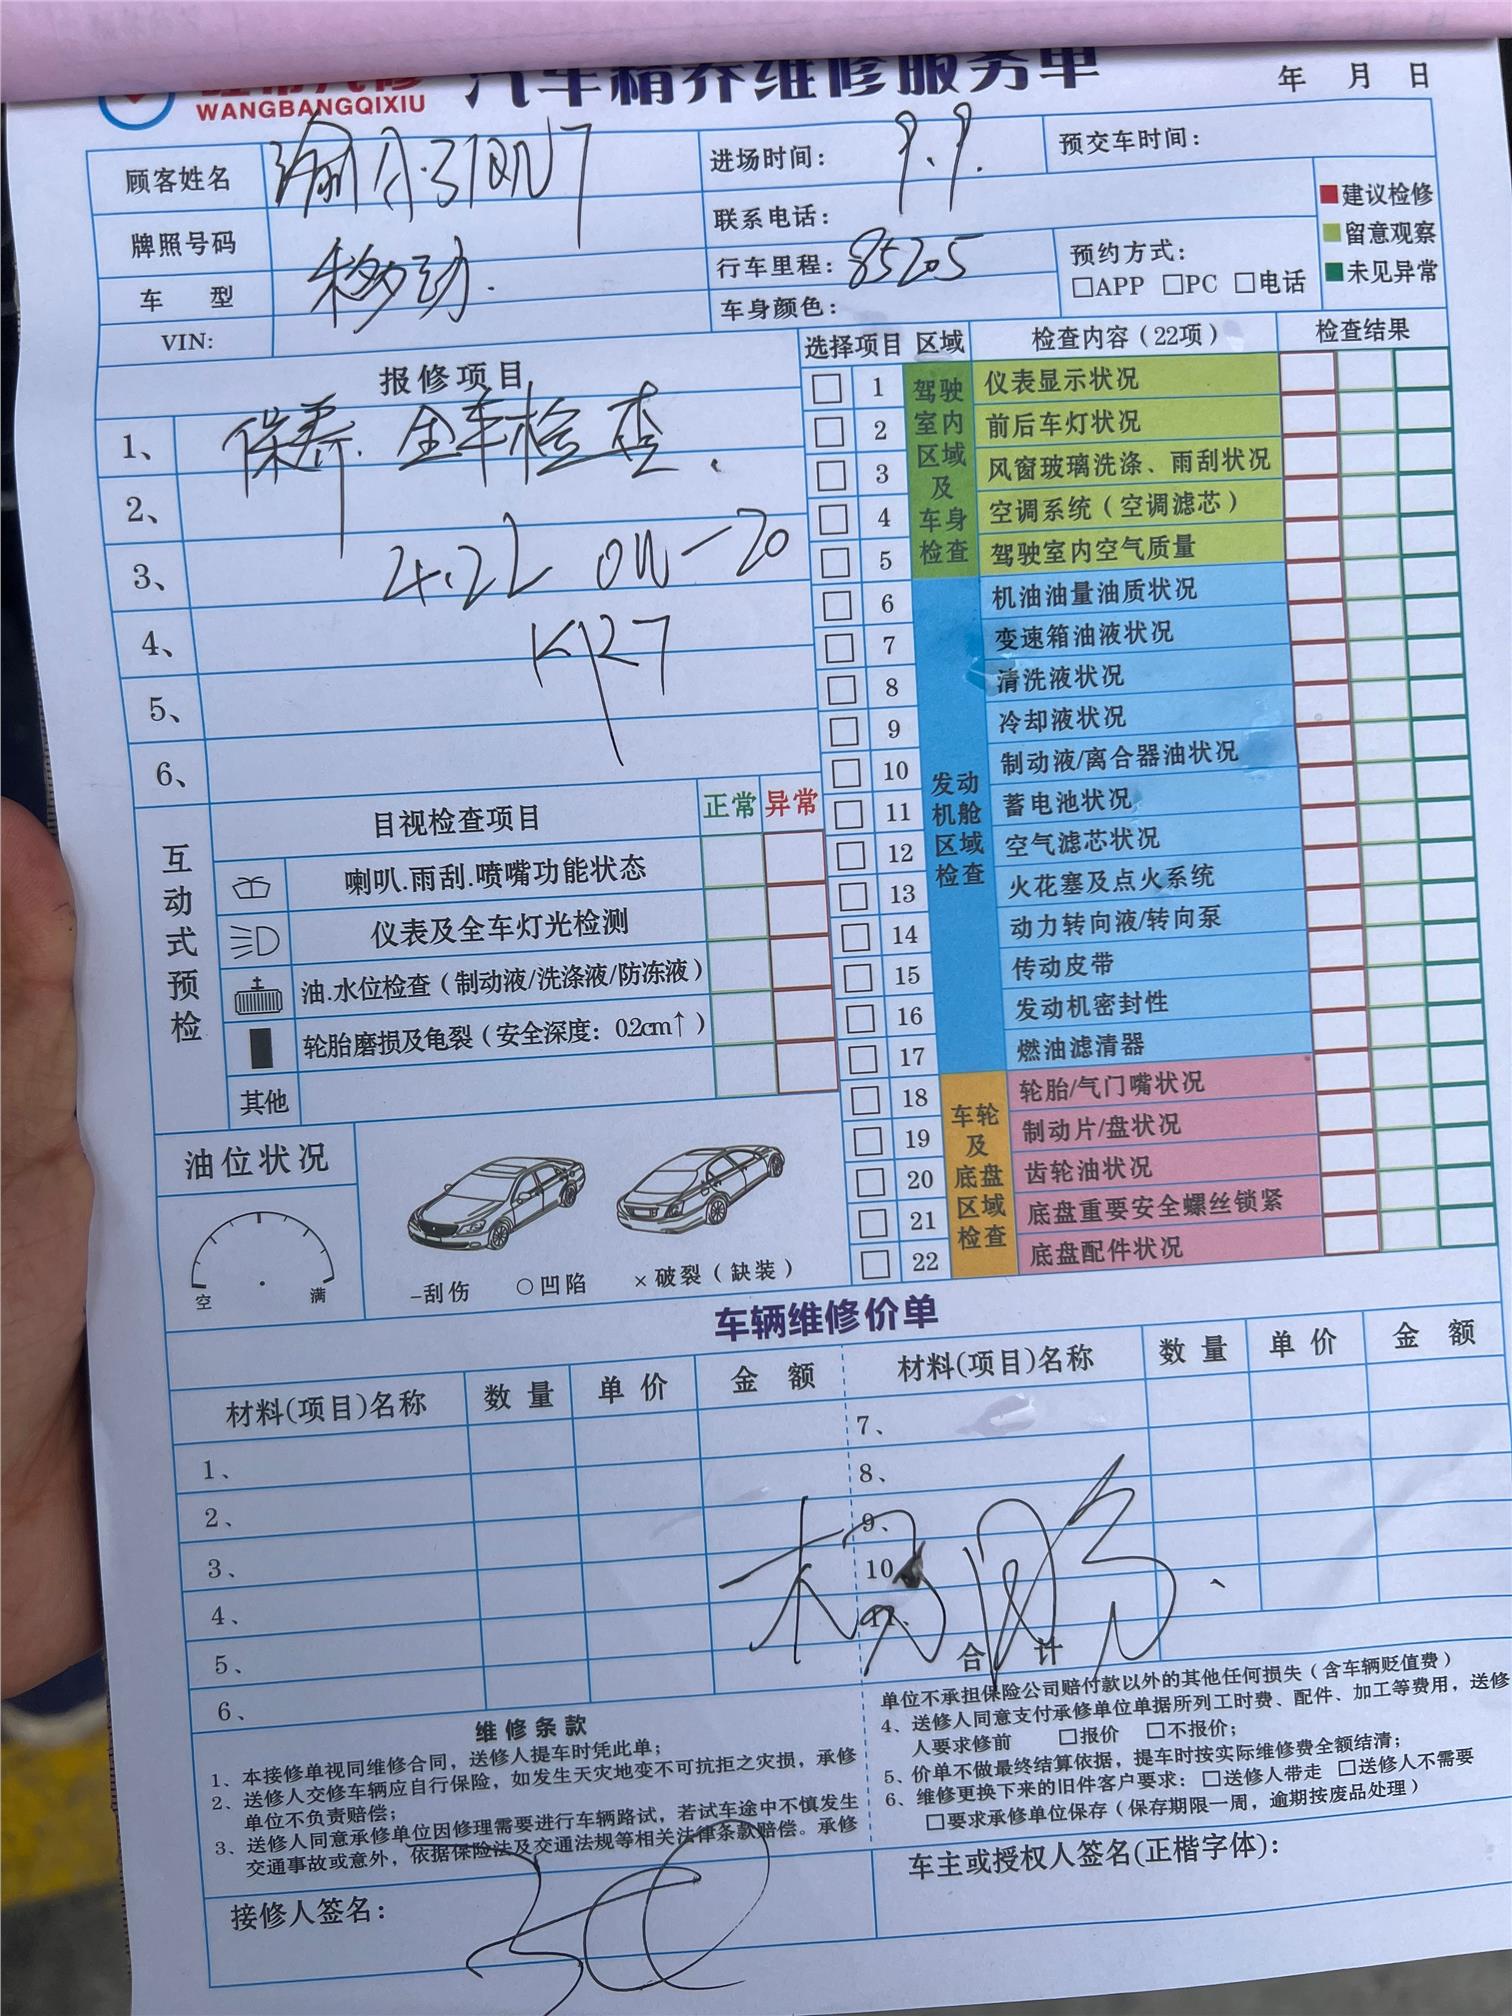 WANGBANGQIXIU
汽车精养维修服务单
年 月 日
顾客姓名
渝A·31QN7
进场时间: 9.9.
预交车时间:
牌照号码
联系电话:
车 型
移动.
行车里程: 85205
预约方式:
□APP □PC □电话
车身颜色:
VIN:
■建议检修
■留意观察
■未见异常
报修项目
1、 保养. 全车检查.
2、
3、 4.2L 0W-20
4、 KR7
5、
6、
选择项目 区域 检查内容(22项) 检查结果
驾驶室内区域及车身检查
□ 1 仪表显示状况
□ 2 前后车灯状况
□ 3 风窗玻璃洗涤、雨刮状况
□ 4 空调系统(空调滤芯)
□ 5 驾驶室内空气质量
发动机舱区域检查
□ 6 机油油量油质状况
□ 7 变速箱油液状况
□ 8 清洗液状况
□ 9 冷却液状况
□ 10 制动液/离合器油状况
□ 11 蓄电池状况
□ 12 空气滤芯状况
□ 13 火花塞及点火系统
□ 14 动力转向液/转向泵
□ 15 传动皮带
□ 16 发动机密封性
□ 17 燃油滤清器
车轮及底盘区域检查
□ 18 轮胎/气门嘴状况
□ 19 制动片/盘状况
□ 20 齿轮油状况
□ 21 底盘重要安全螺丝锁紧
□ 22 底盘配件状况
互动式预检
目视检查项目 正常 异常
喇叭.雨刮.喷嘴功能状态
仪表及全车灯光检测
油.水位检查(制动液/洗涤液/防冻液)
轮胎磨损及龟裂(安全深度: 0.2cm↑)
其他
油位状况
空 满
-刮伤 ○凹陷 ×破裂(缺装)
车辆维修价单
材料(项目)名称 数量 单价 金 额 材料(项目)名称 数量 单价 金 额
1、 7、
2、 8、
3、 9、
4、 10、
5、 11、
6、 合 计
杨
维修条款
1、本接修单视同维修合同，送修人提车时凭此单；
2、送修人交修车辆应自行保险，如发生天灾地变不可抗拒之灾损，承修
单位不负责赔偿；
3、送修人同意承修单位因修理需要进行车辆路试，若试车途中不慎发生
交通事故或意外，依据保险法及交通法规等相关法律条款赔偿。承修
单位不承担保险公司赔付款以外的其他任何损失(含车辆贬值费)
4、送修人同意支付承修单位单据所列工时费、配件、加工等费用，送修
人要求修前 □报价 □不报价；
5、价单不做最终结算依据，提车时按实际维修费全额结清；
6、维修更换下来的旧件客户要求: □送修人带走 □送修人不需要
□要求承修单位保存(保存期限一周，逾期按废品处理)
接修人签名:
车主或授权人签名(正楷字体):